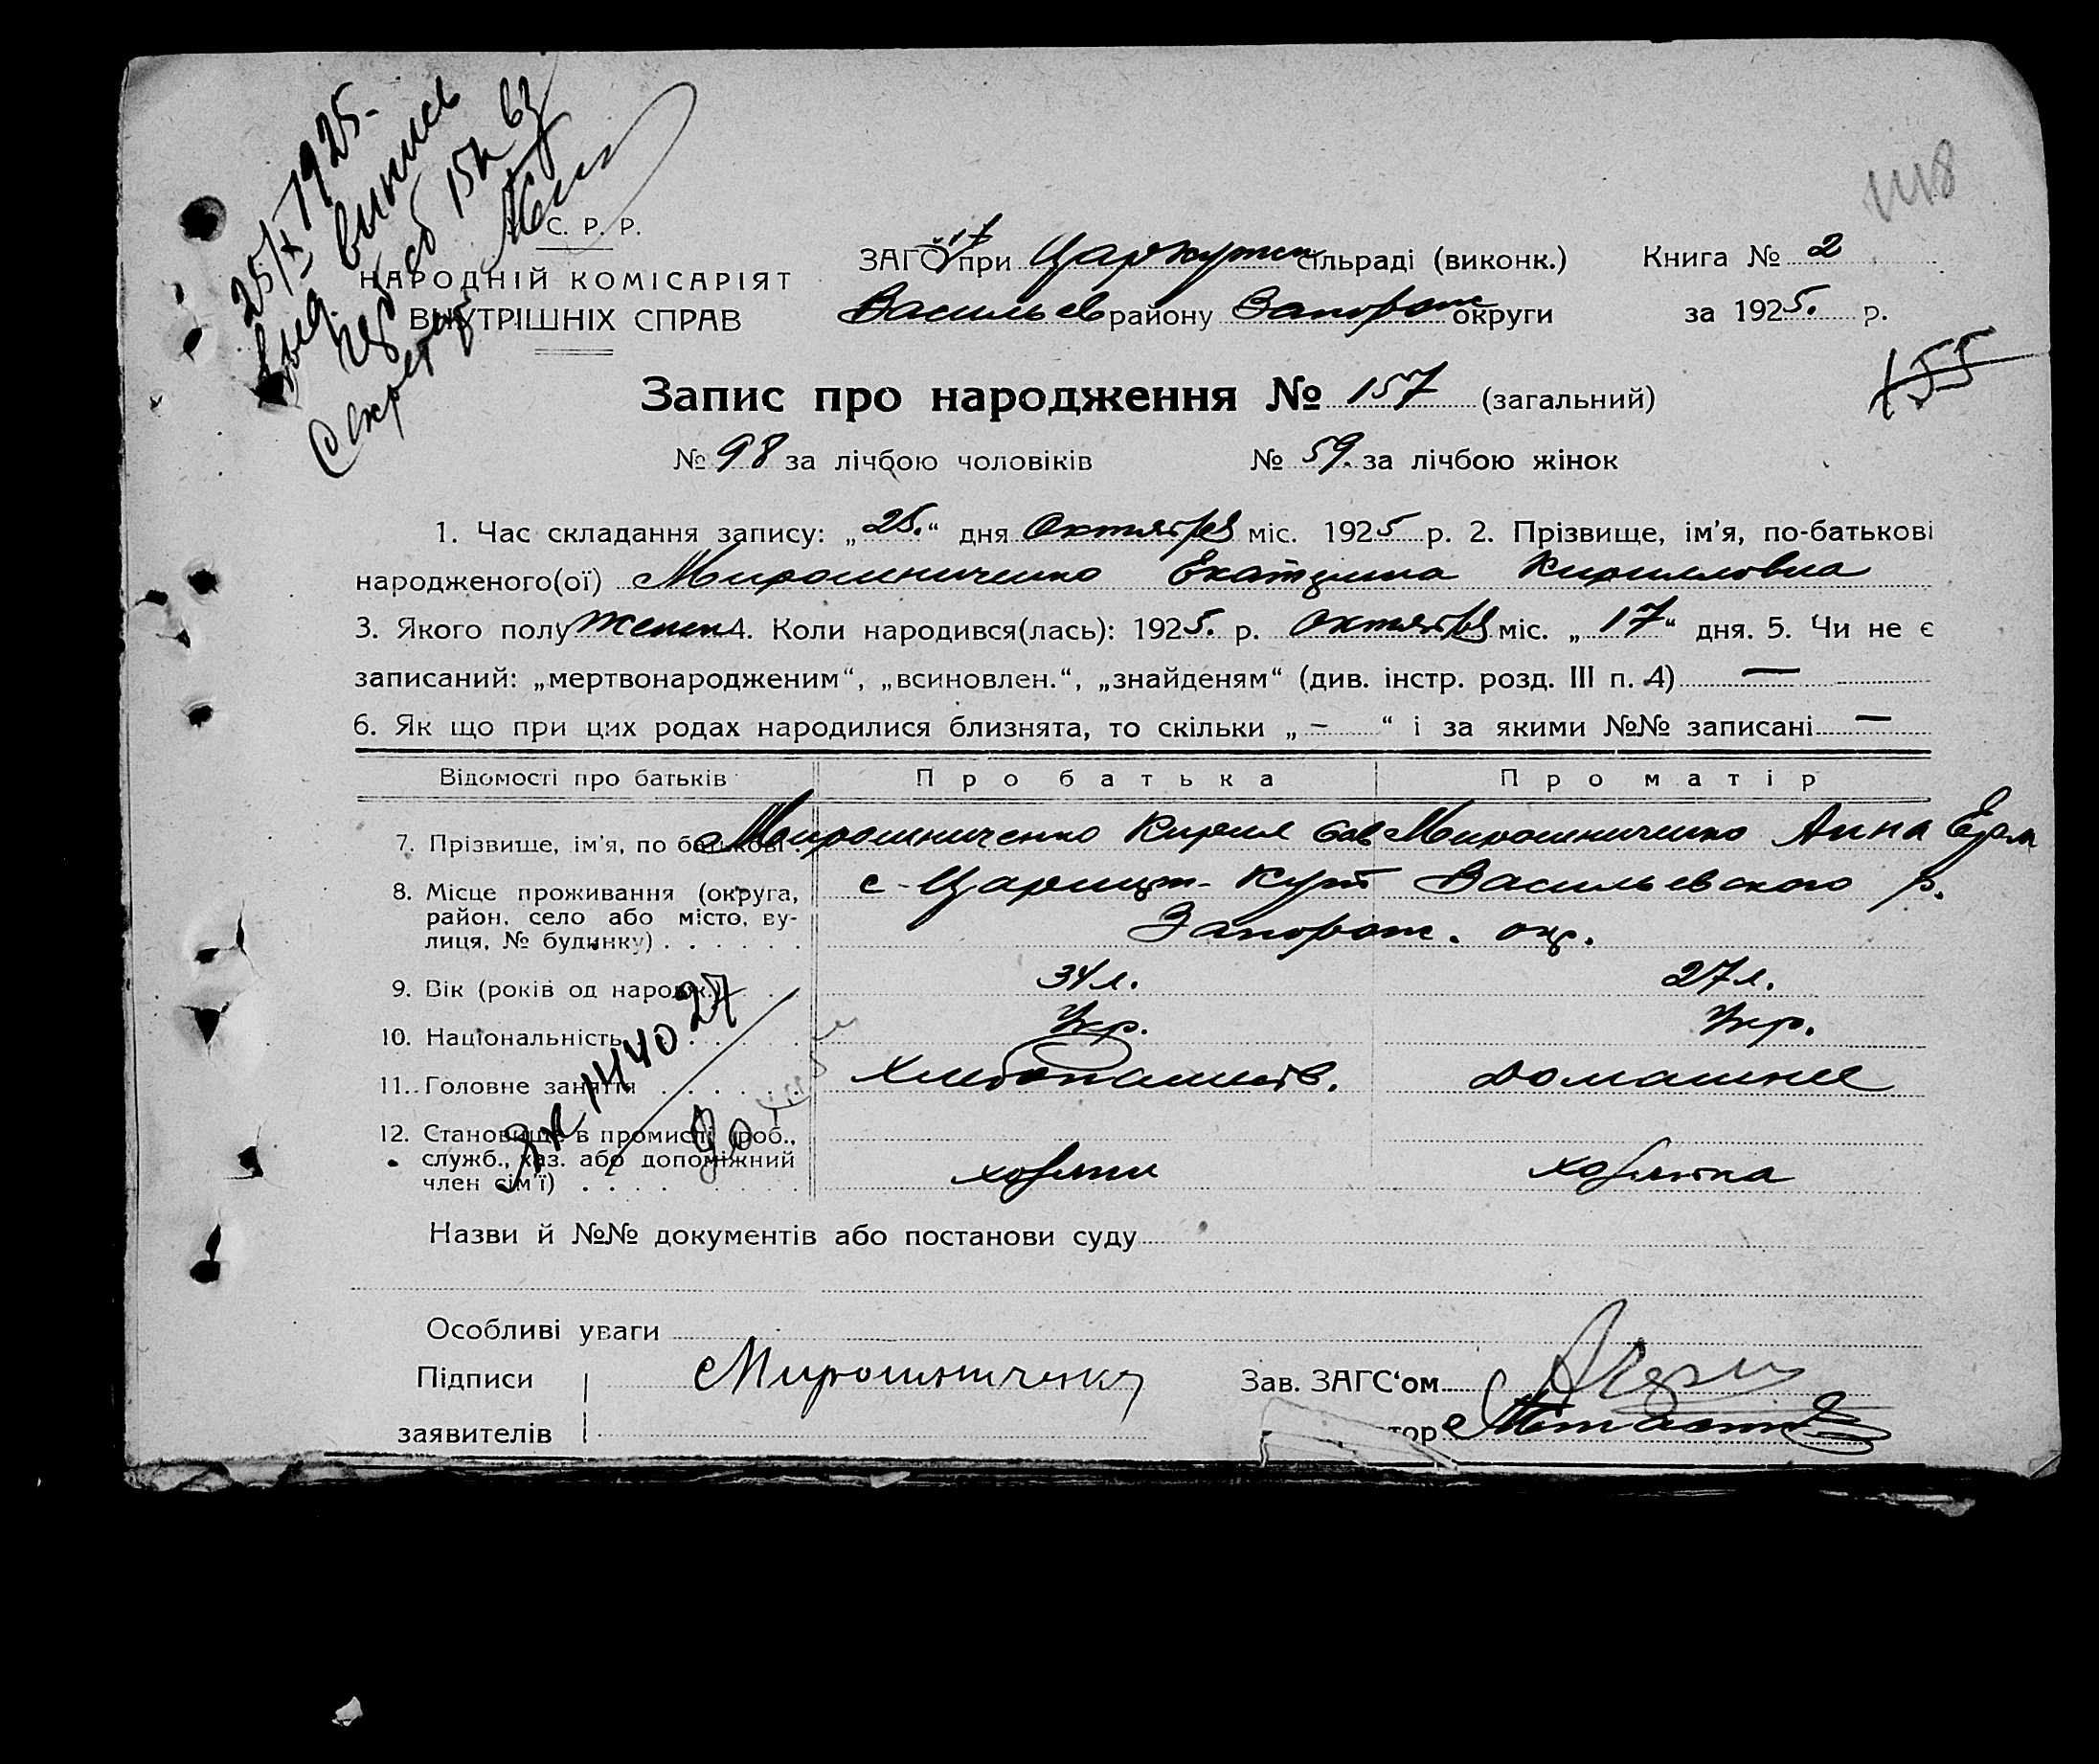 25/X 1925.
выпись
Секретар
С. Р. Р.
НАРОДНІЙ КОМІСАРІЯТ
ВНУТРІШНІХ СПРАВ
ЗАГС при Царкутск сільраді (виконк.) Книга № 2
Васильев району Запорож округи за 1925. р.
1118
155
Запис про народження № 157 (загальний)
№ 98 за лічбою чоловіків № 59. за лічбою жінок
1. Час складання запису: „25.“ дня Октября міс. 1925 р. 2. Прізвище, ім'я, по-батькові
народженого(ої) Мирошниченко Екатерина Кирилловна
3. Якого полу женск 4. Коли народився(лась): 1925. р. Октября міс. „17“ дня. 5. Чи не є
записаний: „мертвонародженим“, „всиновлен.“, „знайденям“ (див. інстр. розд. III п. 4) —
6. Як що при цих родах народилися близнята, то скільки „ – “ і за якими №№ записані —
Відомості про батьків Про батька Про матір
7. Прізвище, ім'я, по батькові . Мирошниченко Кирил Сав Мирошниченко Анна Ерм
8. Місце проживання (округа, с-Царицын-Кут Васильевского р.
район, село або місто, ву-
лиця, № будинку) . . . . . . Запорож. окр.
9. Вік (років од народж.) . . 34 л. 27 л.
10. Національність . . . . . Укр. Укр.
11. Головне заняття . . . . . Хлебопашеств. домашнее
12. Становище в промислі (роб.,
служб., хаз. або допоміжний
член сім'ї) . . . . хозяин хозяйка
Назви й №№ документів або постанови суду
Особливі уваги
Підписи Мирошниченко Зав. ЗАГС'ом
заявителів тор